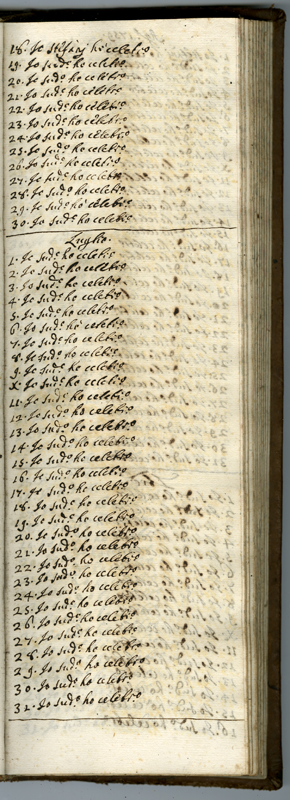 18. Io stefāj hò celebro
19. Io sud.º ho celebro
20. Io sud.º ho celebro
21. Io sud.º ho celebro
22. Io sud.º ho celebro
23. Io sud.º ho celebro
24. Io sud.º ho celebro
25. Io sud.º ho celebro
26. Io sud.º ho celebro
27. Io sud.º ho celebro
28. Io sud.º ho celebro
29. Io sud.º ho celebro
30. Io sud.º ho celebro
Luglio
1. Io sud.º ho celebro
2. Io sud.º ho celebro
3. Io sud.º ho celebro
4. Io sud.º ho celebro
5. Io sud.º ho celebro
6. Io sud.º ho celebro
7. Io sud.º ho celebro
8. Io sud.º ho celebro
9. Io sud.º ho celebro
X. Io sud.º ho celebro
11. Io sud.º ho celebro
12. Io sud.º ho celebro
13. Io sud.º ho celebro
14. Io sud.º ho celebro
15. Io sud.º ho celebro
16. Io sud.º ho celebro
17. Io sud.º ho celebro
18. Io sud.º ho celebro
19. Io sud.º ho celebro
20. Io sud.º ho celebro
21. Io sud.º ho celebro
22. Io sud.º ho celebro
23. Io sud.º ho celebro
24. Io sud.º ho celebro
25. Io sud.º ho celebro
26. Io sud.º ho celebro
27. Io sud.º ho celebro
28. Io sud.º ho celebro
29. Io sud.º ho celebro
30. Io sud.º ho celebro
31. Io sud.º ho celebro